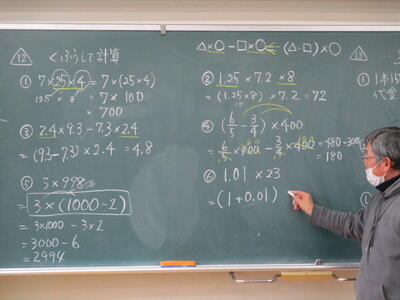 ⑫ くふうして計算
① 7×25×4 = 7×(25×4)
125 × 8 = 7×100
= 700
③ 2.4×9.3−7.3×2.4
=(9.3−7.3)×2.4=4.8
⑤ 3×998
=3×(1000−2)
=3×1000−3×2
=3000−6
=2994
△×○−□×○ (△−□)×○
② 1.25×7.2×8
=(1.25×8)×7.2=72
10
④ (6/5−3/4)×400
=6/5×400−3/4×400=480−300
=180
⑥ 1.01×23
=(1+0.01)
⑬
①